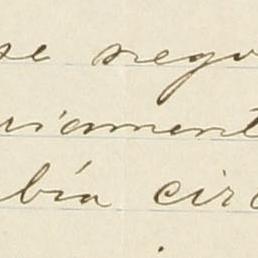 se nego
riament
bía circ